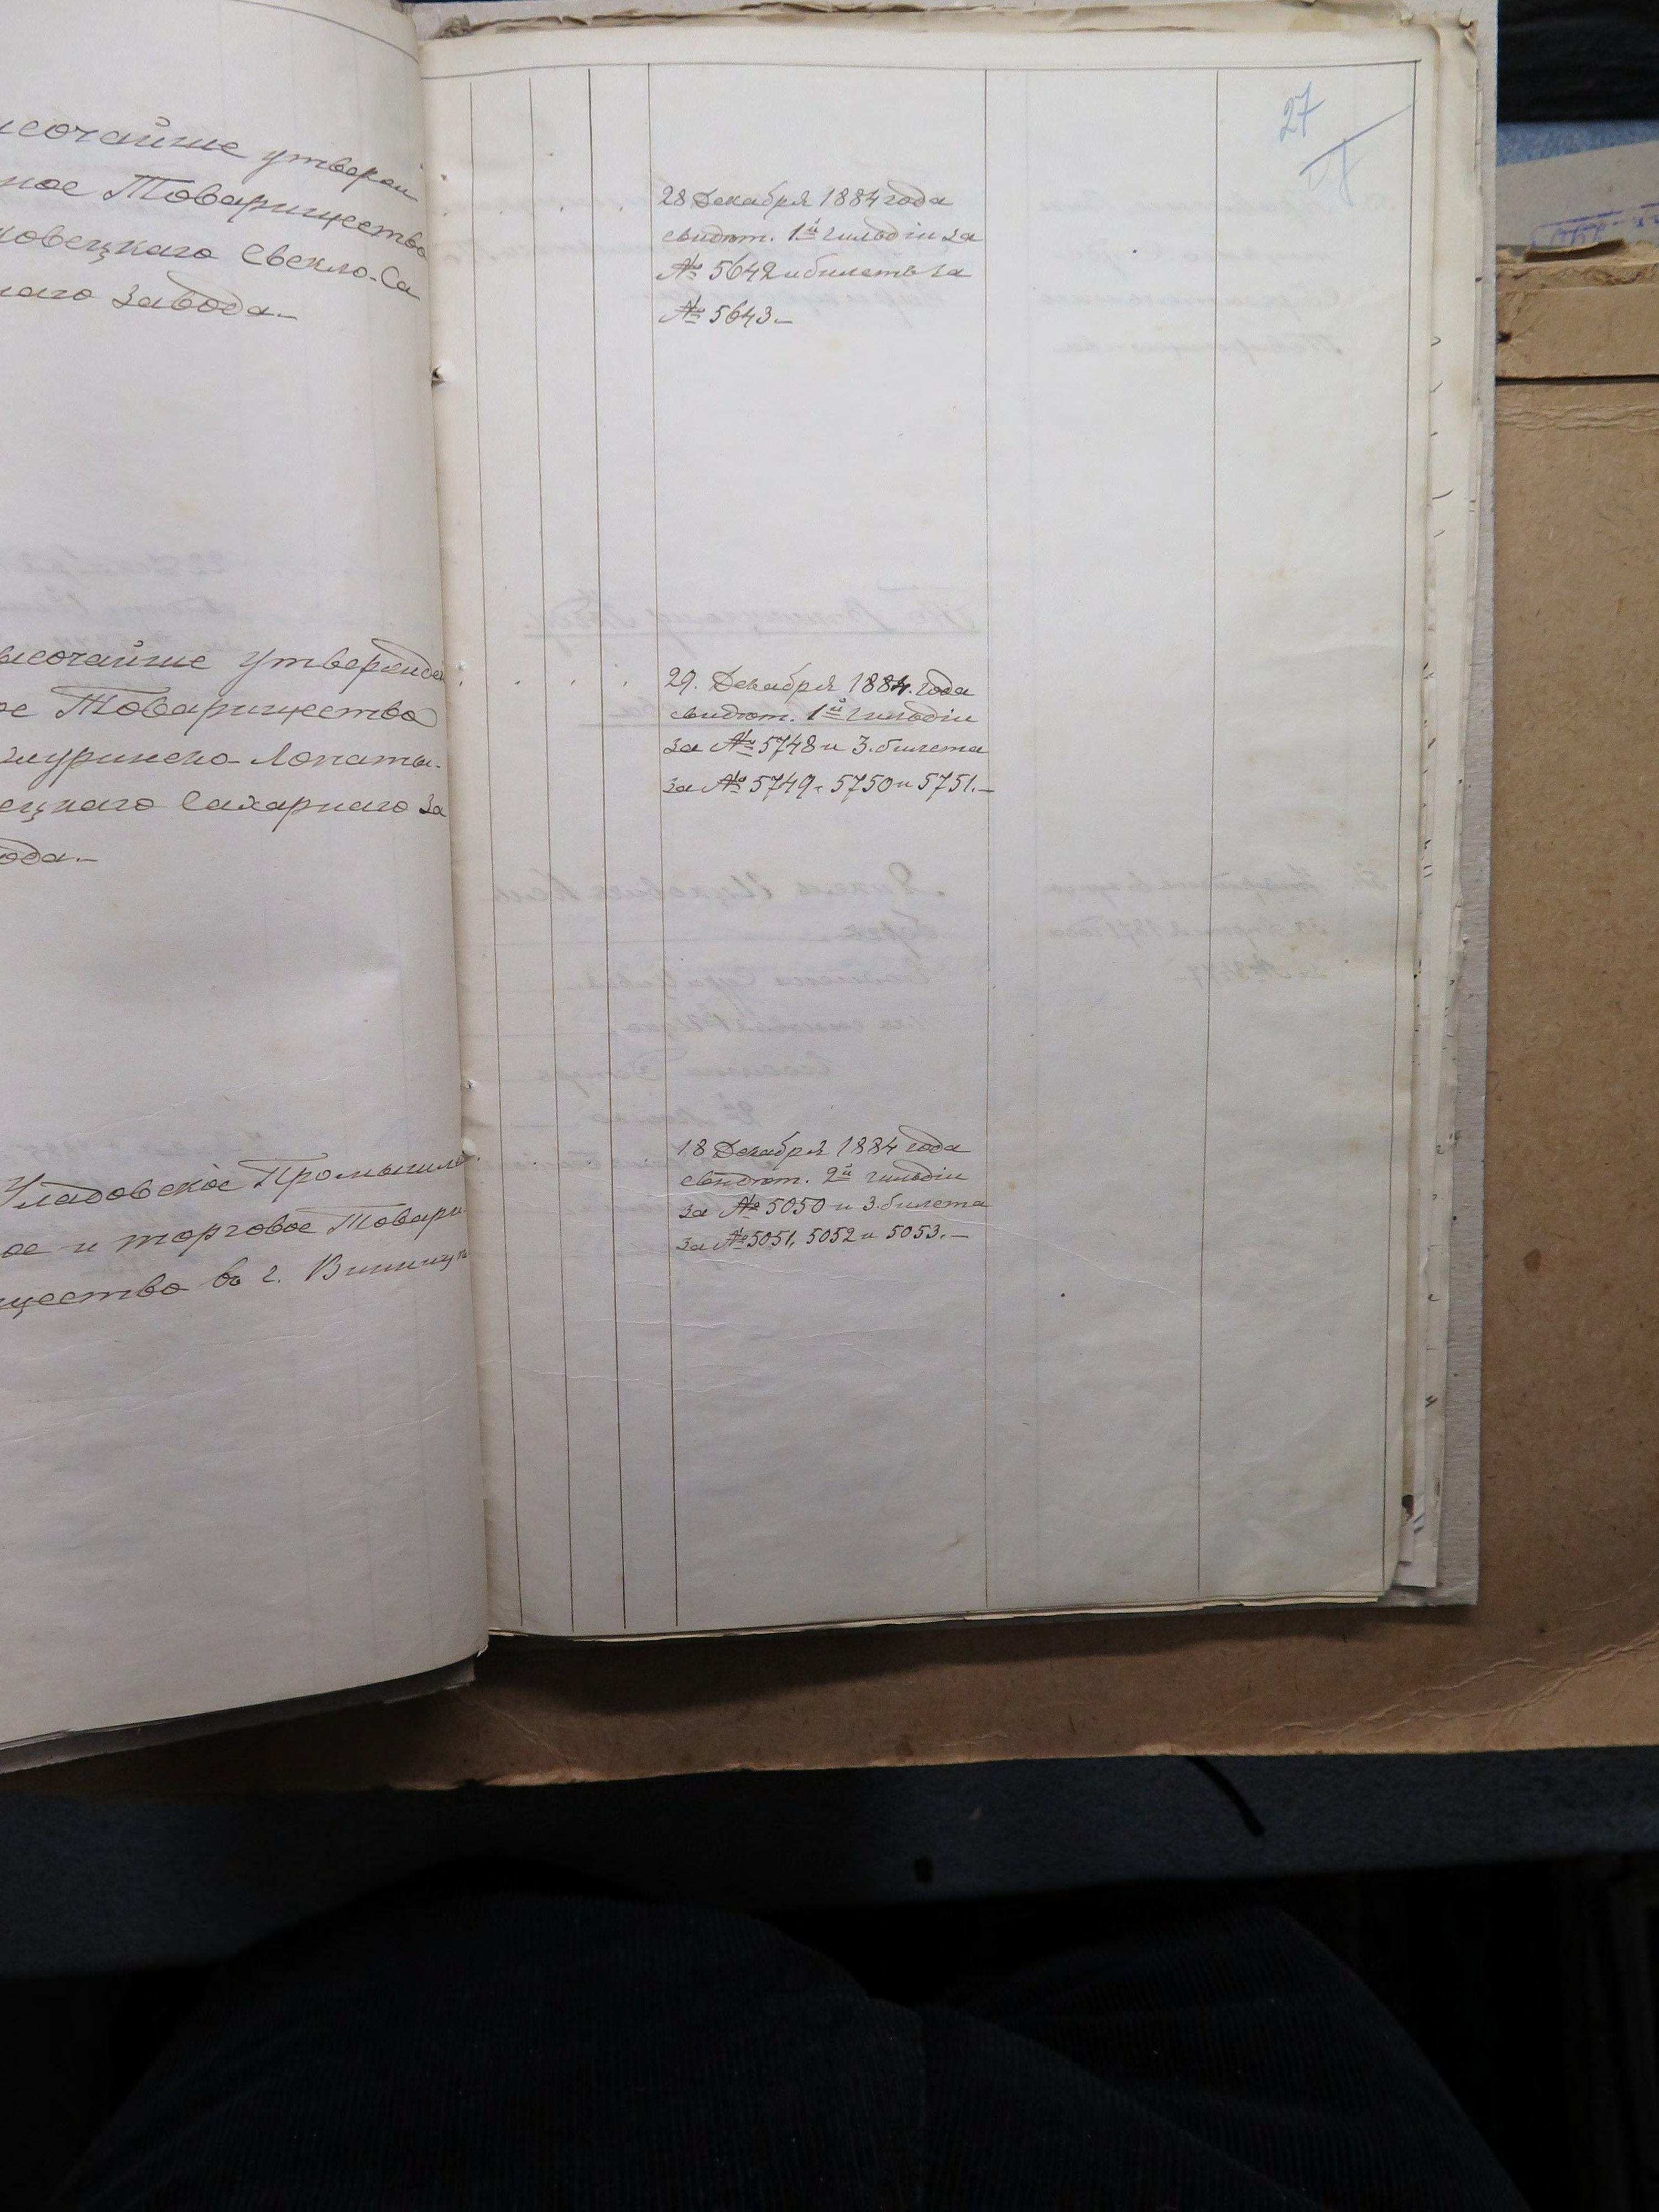 27
ысочайше утвержден
ное Товарищество
новецкаго Свекло-Са
наго Завода.-
28 Декабря 1884 года
свидѣт. 1й гильдіи за
№ 5642 и билетъ за
№ 5643.-
ысочайше утвержден
ое Товарищество
ецкаго Сахарнаго За
ода.-
29. Декабря 1884. года
свидѣт. 1й гильдіи
за № 5748 и 3. билета
за № 5749, 5750 и 5751.-
Уладовское Промышлен
ое и торговое Товари
щество въ г. Винницѣ
18 Декабря 1884 года
свидѣт. 2й гильдіи
за № 5050 и 3. билета
за № 5051, 5052 и 5053.-